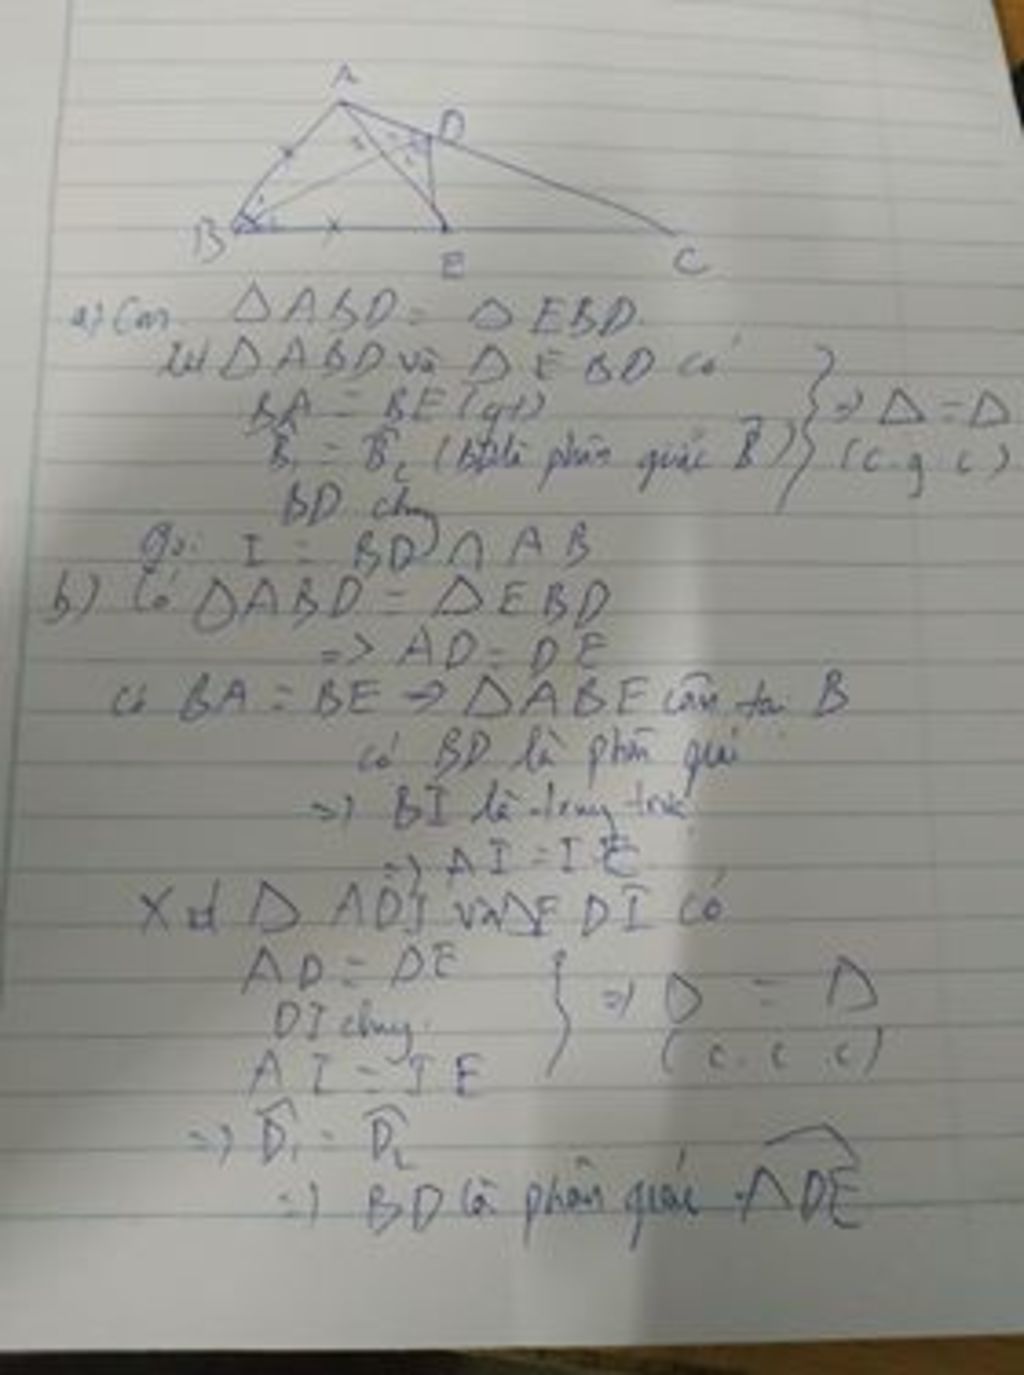 A
D
B
E
C
a) Cm ΔABD = ΔEBD
Xét ΔABD và ΔEBD có
BA = BE (gt)
B̂₁ = B̂₂ (BD là phân giác B̂) } => Δ = Δ
BD chung (c.g.c)
Gọi I = BD ∩ AB
b) Có ΔABD = ΔEBD
=> AD = DE
có BA = BE => ΔABE cân tại B
có BD là phân giác
=> BI là trung trực
=> AI = IE
Xét Δ ADI và ΔEDI có
AD = DE
DI chung } => Δ = Δ
AI = IE (c.c.c)
=> D̂₁ = D̂₂
=> BD là phân giác ADE